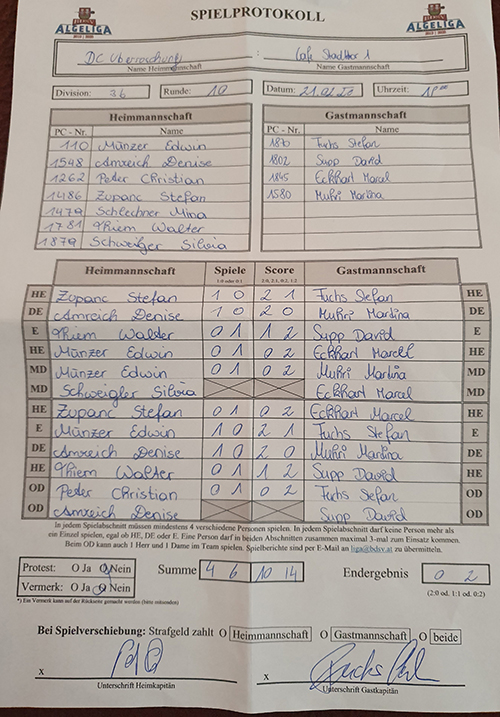 SPIELPROTOKOLL
ALGELIGA
ALGELIGA
DC Überraschung : Cafe Stadttor 1
Name Heimmannschaft Name Gastmannschaft
Division: 3b Runde: 10 Datum: 21.02.20 Uhrzeit:
Heimmannschaft Gastmannschaft
PC - Nr. Name PC - Nr. Name
110 Münzer Edwin 1870 Fuchs Stefan
1598 Amreich Denise 1802 Supp David
1262 Peter Christian 1845 Eckhart Marcel
1486 Zupanc Stefan 1580 Muhri Martina
1479 Schlechner Mina
1781 Thiem Walter
1879 Schweigler Silvia
Heimmannschaft Spiele Score Gastmannschaft
1:0 oder 0:1 2:0, 2:1, 0:2, 1:2
HE Zupanc Stefan 1 0 2 1 Fuchs Stefan HE
DE Amreich Denise 1 0 2 0 Muhri Martina DE
E Thiem Walter 0 1 1 2 Supp David E
HE Münzer Edwin 0 1 0 2 Eckhart Marcel HE
MD Münzer Edwin 0 1 0 2 Muhri Martina MD
MD Schweigler Silvia Eckhart Marcel MD
HE Zupanc Stefan 0 1 0 2 Eckhart Marcel HE
E Münzer Edwin 1 0 2 1 Fuchs Stefan E
DE Amreich Denise 1 0 2 0 Muhri Martina DE
HE Thiem Walter 0 1 1 2 Supp David HE
OD Peter Christian 0 1 0 2 Fuchs Stefan OD
OD Amreich Denise Supp David OD
In jedem Spielabschnitt müssen mindestens 4 verschiedene Personen spielen. In jedem Spielabschnitt darf keine Person mehr als
ein Einzel spielen, egal ob HE, DE oder E. Eine Person darf in beiden Abschnitten zusammen maximal 3-mal zum Einsatz kommen.
Beim OD kann auch 1 Herr und 1 Dame im Team spielen. Spielberichte sind per E-Mail an liga@bdsv.at zu übermitteln.
Protest: O Ja O Nein Summe 4 6 10 14 Endergebnis 0 2
Vermerk: O Ja O Nein (2:0 od. 1:1 od. 0:2)
*) Ein Vermerk kann auf der Rückseite gemacht werden (bitte ankreuzen)
Bei Spielverschiebung: Strafgeld zahlt O Heimmannschaft O Gastmannschaft O beide
x x
Unterschrift Heimkapitän Unterschrift Gastkapitän